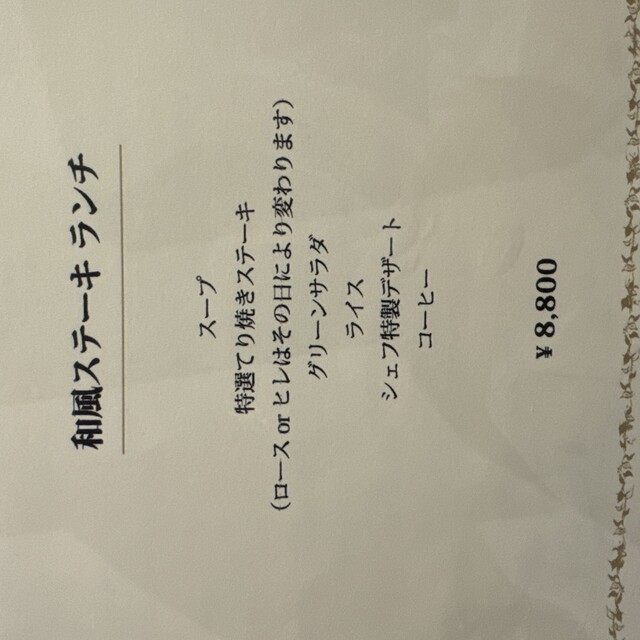 和風ステーキランチ
スープ
特選てり焼きステーキ
(ロース or ヒレはその日により変わります)
グリーンサラダ
ライス
シェフ特製デザート
コーヒー
¥ 8,800